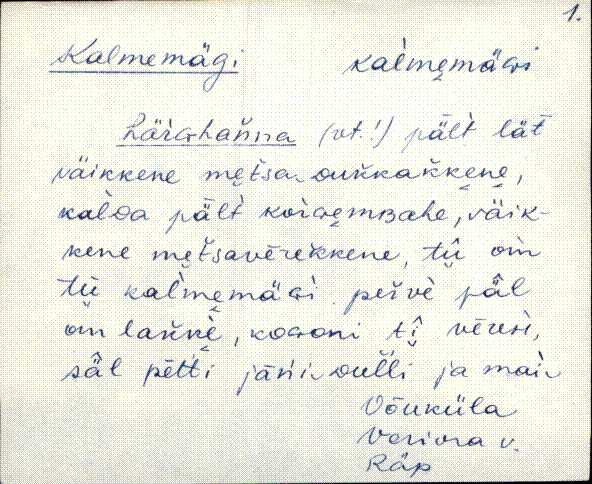 1.
Kalmemägi kalmemäɢi
Läraɢhańna (vt.!) pält lät
väikkene metsa-dukkakkene,
kalda pält koiɢemʙahe, väik-
kene metsavērekkene, tû om
tû kalmemäɢi. perve pǟl
om lakkè, koɢoni tî vēreni,
sǟl pētti jāńi-dulli ja mai-
Võuküla
Veriora v.
Räp